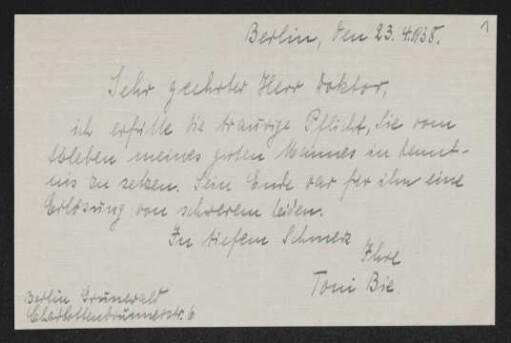 Berlin, den 23.4.1938. 1
Sehr geehrter Herr Doktor,
ich erfülle die traurige Pflicht, Sie vom
Ableben meines guten Mannes in Kennt-
nis zu setzen. Sein Ende war für ihn eine
Erlösung von schwerem Leiden.
In tiefem Schmerz
Ihre
Toni Bie.
Berlin Grunewald
Charlottenbrunnerstr. 6